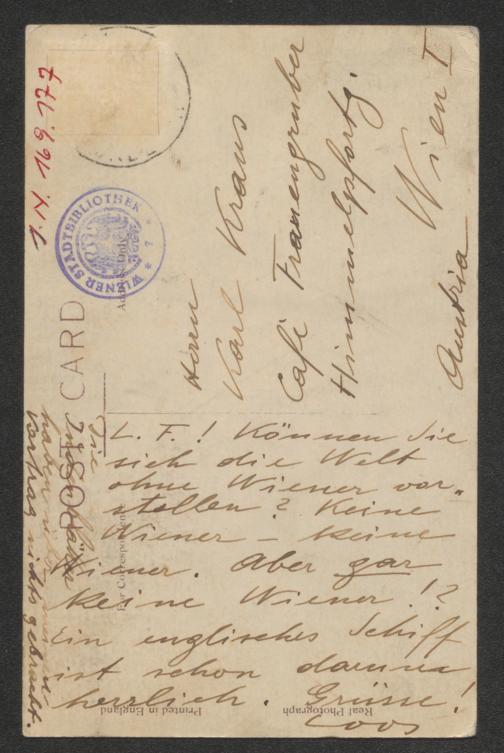 L. F.! Können Sie
sich die Welt
ohne Wiener vor„
stellen? Keine
Wiener – keine
Wiener. Aber gar
keine Wiener!?
Ein englisches Schiff
ist schon damna
herrlich. Grüsse!
Loos
Die
haben
Vortrag nichts gebracht.
Herrn
Karl Kraus
Café Frauengruber
Himmelpfortg.
Wien I
Austria
POST CARD
WIENER STADTBIBLIOTHEK
* 7 *
I. N. 169.177
Address Only
For Correspondence
Printed in England
Real Photograph